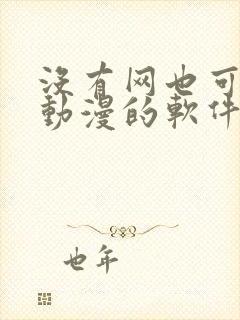 沒有网也可
動漫的軟件
也年